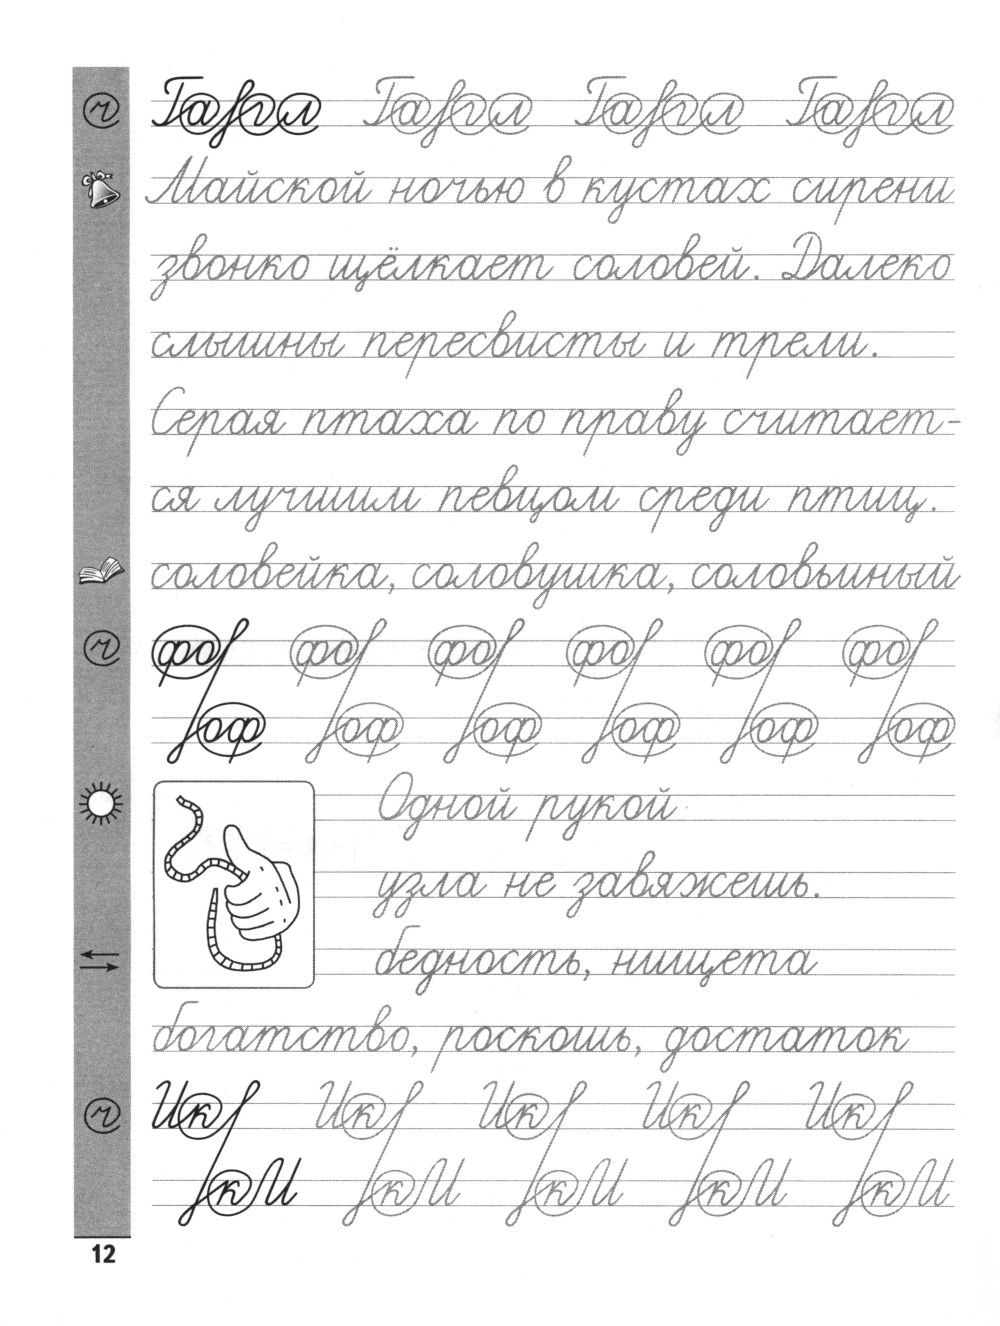 Га г л Га г л Га г л Га г л
Майской ночью в кустах сирени
звонко щёлкает соловей. Далеко
слышны пересвисты и трели.
Серая птаха по праву считает-
ся лучшим певцом среди птиц.
соловейка, соловушка, соловьиный
фо фо фо фо фо фо
оф оф оф оф оф оф
Одной рукой
узла не завяжешь.
бедность, нищета
богатство, роскошь, достаток
Ик Ик Ик Ик Ик
кИ кИ кИ кИ кИ
12